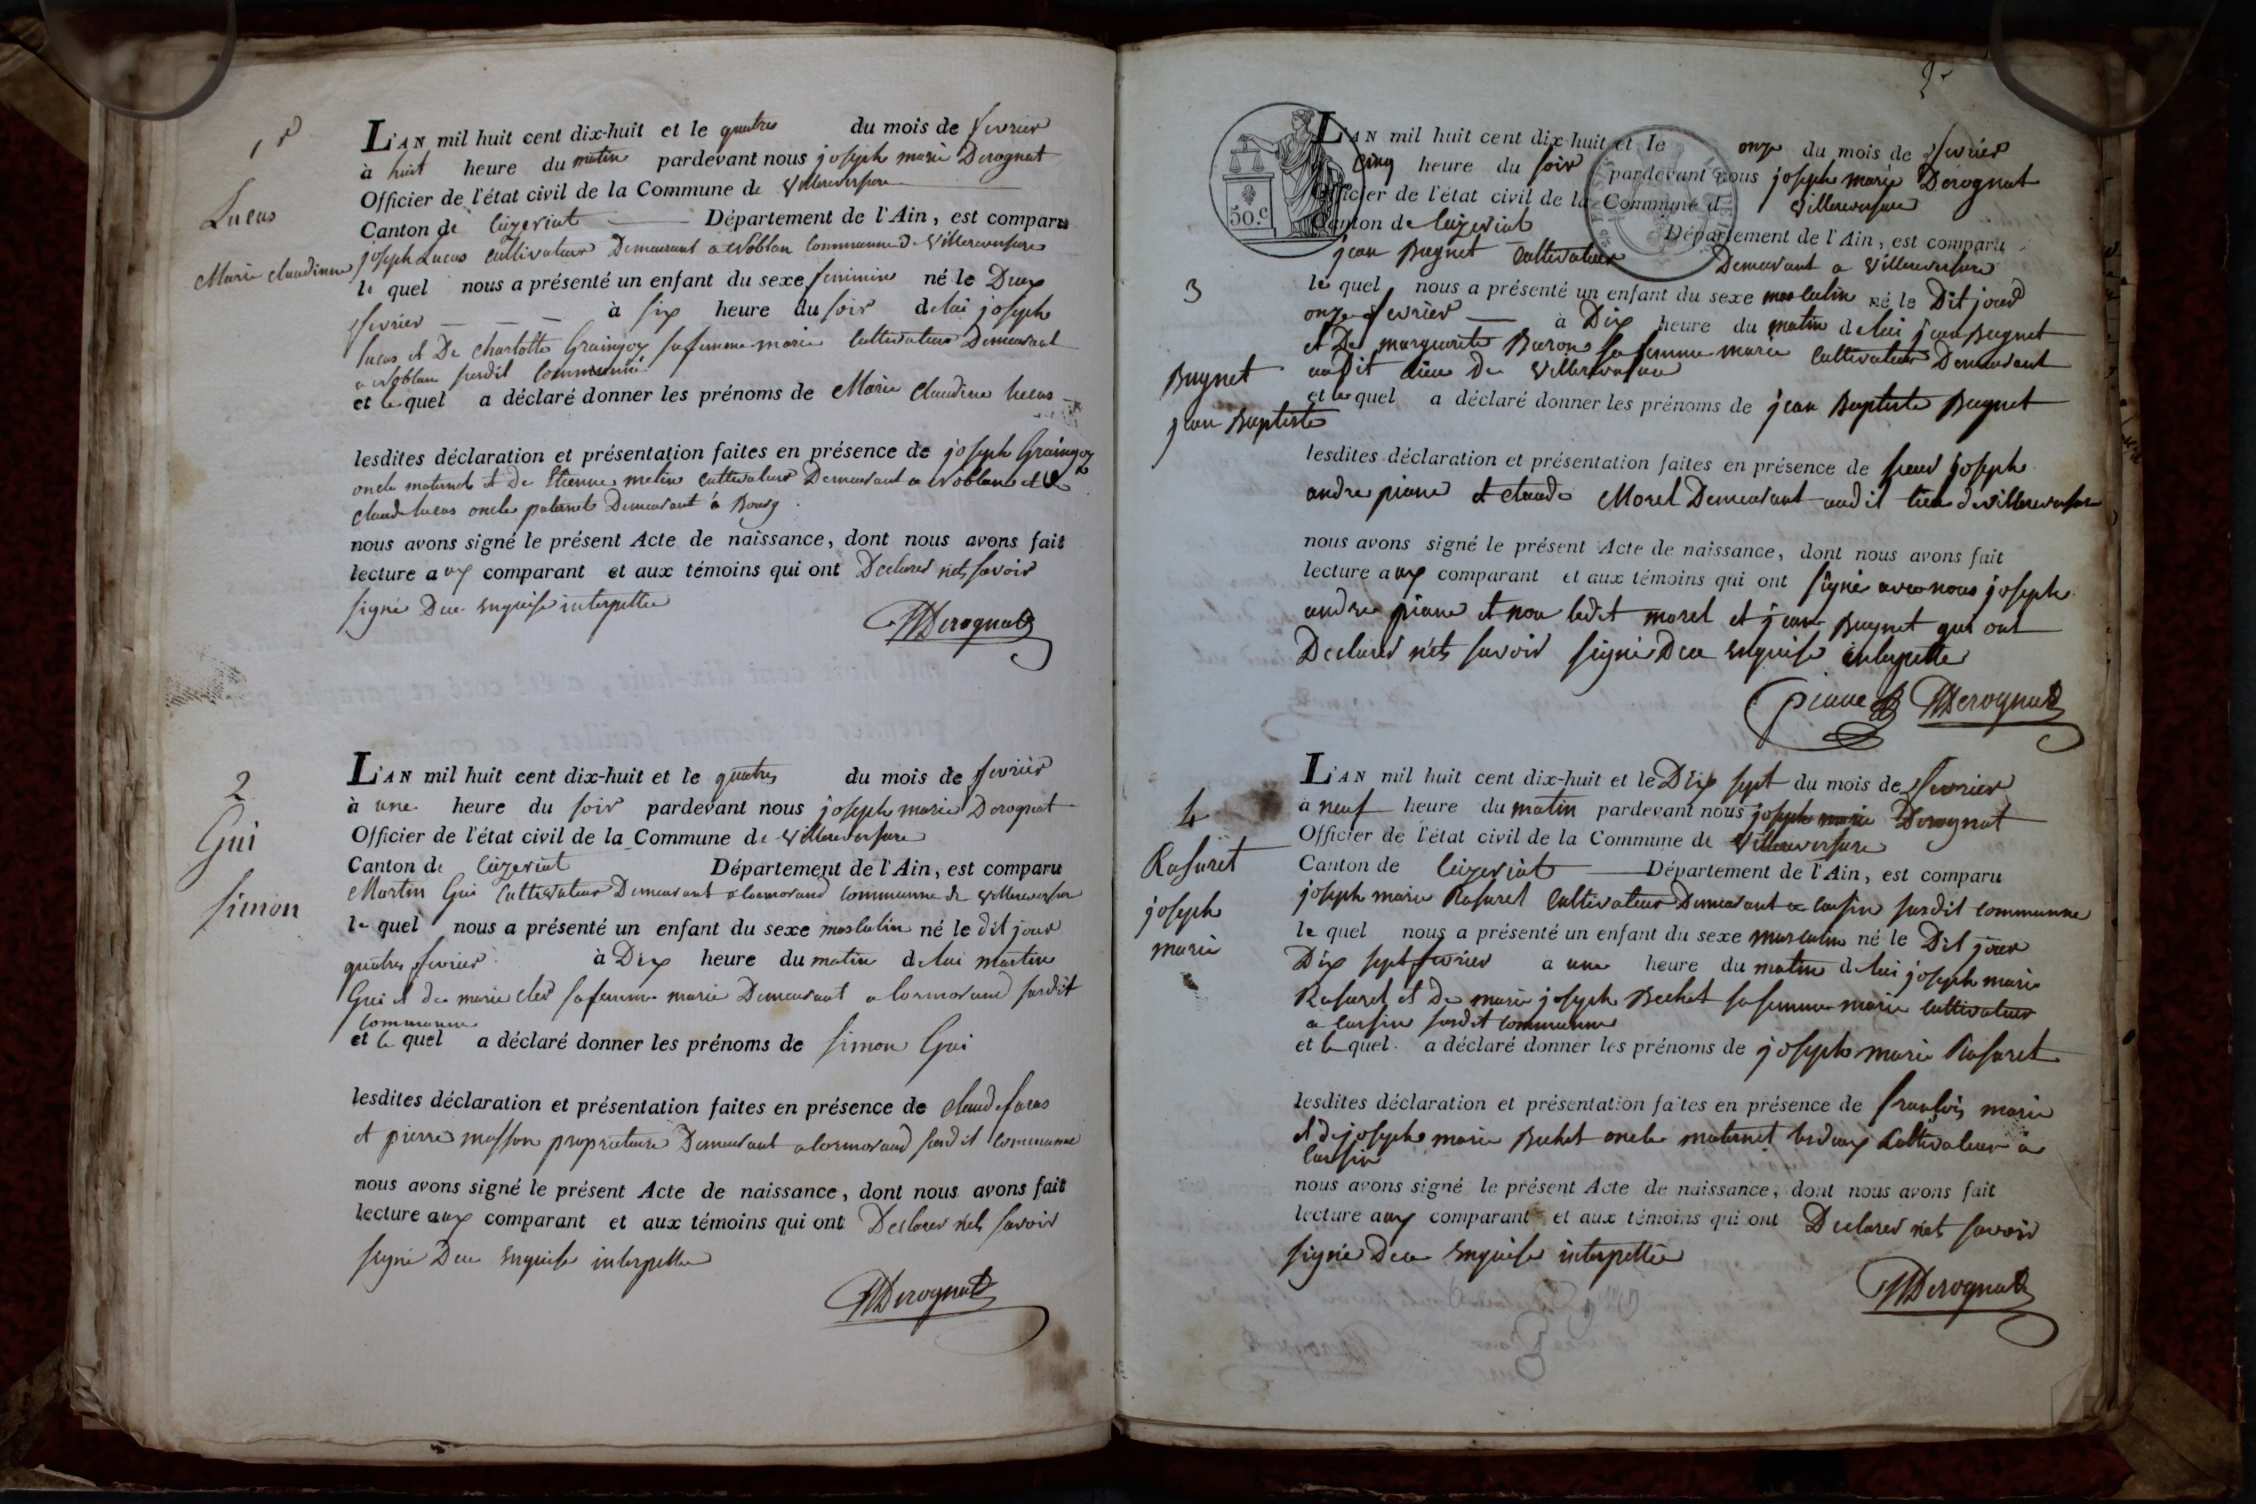 1r
Lucas
Marie Claudine
L'AN mil huit cent dix-huit et le quatres du mois de fevrier
à huit heure du matin pardevant nous joseph marie Derognat
Officier de l'état civil de la Commune de Villereversure
Canton de Ceizeriat Département de l'Ain, est comparu
joseph Lucas Cultivateur Demeurant a Noblan Communne De Villereversure
le quel nous a présenté un enfant du sexe feminin né le Deux
fevrier à six heure du soir de lui joseph
lucas et De Charlotte Graingoy sa femme marie Cultivateur Demeurant
a Noblan susdit Communne
et le quel a déclaré donner les prénoms de Marie Claudine lucas
lesdites déclaration et présentation faites en présence de joseph Graingoy
oncle maternel et de Etienne melin Cultivateur Demeurant a Noblan et de
Claude lucas oncle paternel Demeurant a Bourg
nous avons signé le présent Acte de naissance, dont nous avons fait
lecture aux comparant et aux témoins qui ont Declarer nets savoir
signé Dece enquise interpettée
JMDerognat
2
Gui
simon
L'AN mil huit cent dix-huit et le quatres du mois de fevrier
à une heure du soir pardevant nous joseph marie Derognat
Officier de l'état civil de la Commune de Villereversure
Canton de Ceizeriat Département de l'Ain, est comparu
Martin Gui Cultivateur Demeurant a Cormorand Communne de Villereversure
le quel nous a présenté un enfant du sexe masculin né le dit jour
quatres fevrier à Dix heure du matin de lui martin
Gui et de marie cler sa femme marie Demeurant a Cormorand susdit
Communne
et le quel a déclaré donner les prénoms de simon Gui
lesdites déclaration et présentation faites en présence de Claude faras
et pierre masson propriétaire Demeurant a Cormorand susdit Communne
nous avons signé le présent Acte de naissance, dont nous avons fait
lecture aux comparant et aux témoins qui ont Declarer nets savoir
signé Dece enquise interpettée
JMDerognat
2
50.c
L'AN mil huit cent dix-huit et le onze du mois de fevrier
à Cinq heure du soir pardevant nous joseph marie Derognat
Officier de l'état civil de la Commune d Villereversure
Canton de Ceizeriat Département de l'Ain, est comparu
jean Bugnet Cultivateur Demeurant a Villereversure
3
Bugnet
jean Baptiste
le quel nous a présenté un enfant du sexe masculin né le Dit jour
onze fevrier à Dix heure du matin de lui jean Bugnet
et De marguerite Buron sa femme marie Cultivateur Demeurant
audit lieu De Villereversure
et le quel a déclaré donner les prénoms de jean Baptiste Bugnet
lesdites déclaration et présentation faites en présence de sieur joseph
andre piane et claude Morel Demeurant audit lieu de villereversure
nous avons signé le présent Acte de naissance, dont nous avons fait
lecture aux comparant et aux témoins qui ont signé avec nous joseph
andre piane et non ledit morel et jean Bugnet qui ont
Declarer nets savoir signé Dece enquise interpette
piane JMDerognat
4
Rasuret
joseph
marie
L'AN mil huit cent dix-huit et le Dix sept du mois de fevrier
à neuf heure du matin pardevant nous joseph marie Derognat
Officier de l'état civil de la Commune de Villereversure
Canton de Ceizeriat Département de l'Ain, est comparu
joseph marie Rasurel Cultivateur Demeurant a Cursin susdit communne
le quel nous a présenté un enfant du sexe masculin né le Dit jour
Dix sept fevrier à une heure du matin de lui joseph marie
Rasurel et De marie joseph Bechet sa femme marie Cultivateur
a Cursin susdit communne
et le quel a déclaré donner les prénoms de joseph marie Rasuret
lesdites déclaration et présentation faites en présence de francois marie
et de joseph marie Buchet oncle maternel Cultivateur a
Cursin
nous avons signé le présent Acte de naissance, dont nous avons fait
lecture aux comparant et aux témoins qui ont Declarer nets savoir
signé Dece enquise interpettée
JMDerognat